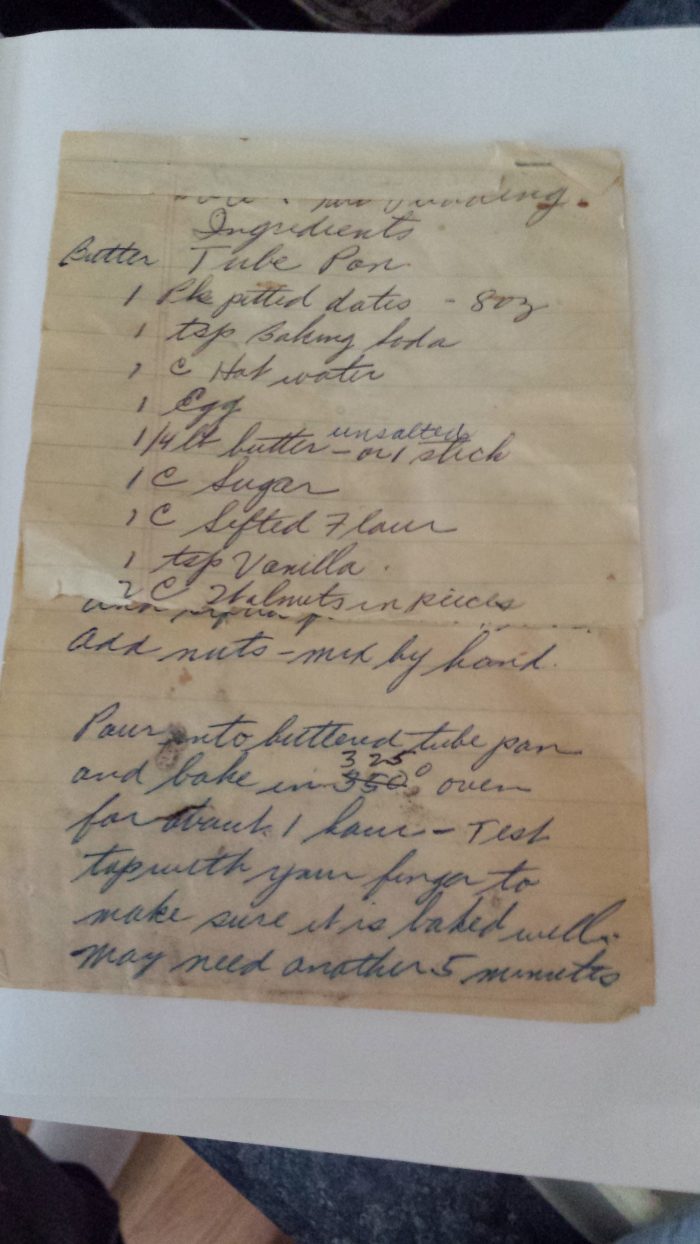 Pudding.
Ingredients
Butter Tube Pan
1 Pk pitted dates - 8 oz
1 tsp Baking Soda
1 C Hot water
1 Egg
unsalted
1/4 lb butter - or 1 stick
1 C Sugar
1 C Sifted Flour
1 tsp Vanilla.
2 C Walnuts in pieces
add nuts - mix by hand.
Pour into buttered tube pan
325
and bake in 350° oven
for about 1 hour - Test
top with your finger to
make sure it is baked well.
May need another 5 minutes